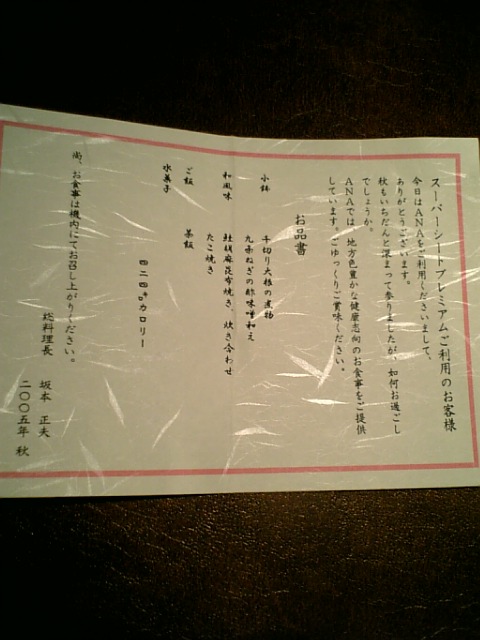 スーパーシートプレミアムご利用のお客様
今日はANAをご利用くださいまして、
ありがとうございます。
秋もいちだんと深まって参りましたが、如何お過ごし
でしょうか。
ANAでは、地方色豊かな健康志向のお食事をご提供
しています。ごゆっくりご賞味ください。
お品書
小鉢 千切り大根の煮物
九条ねぎの酢味噌和え
和風味 鮭胡麻昆布焼き、炊き合わせ
たこ焼き
ご飯 茶飯
水菓子
四二四カロリー
尚、お食事は機内にてお召し上がりください。
総料理長 坂本 正夫
二〇〇五年 秋